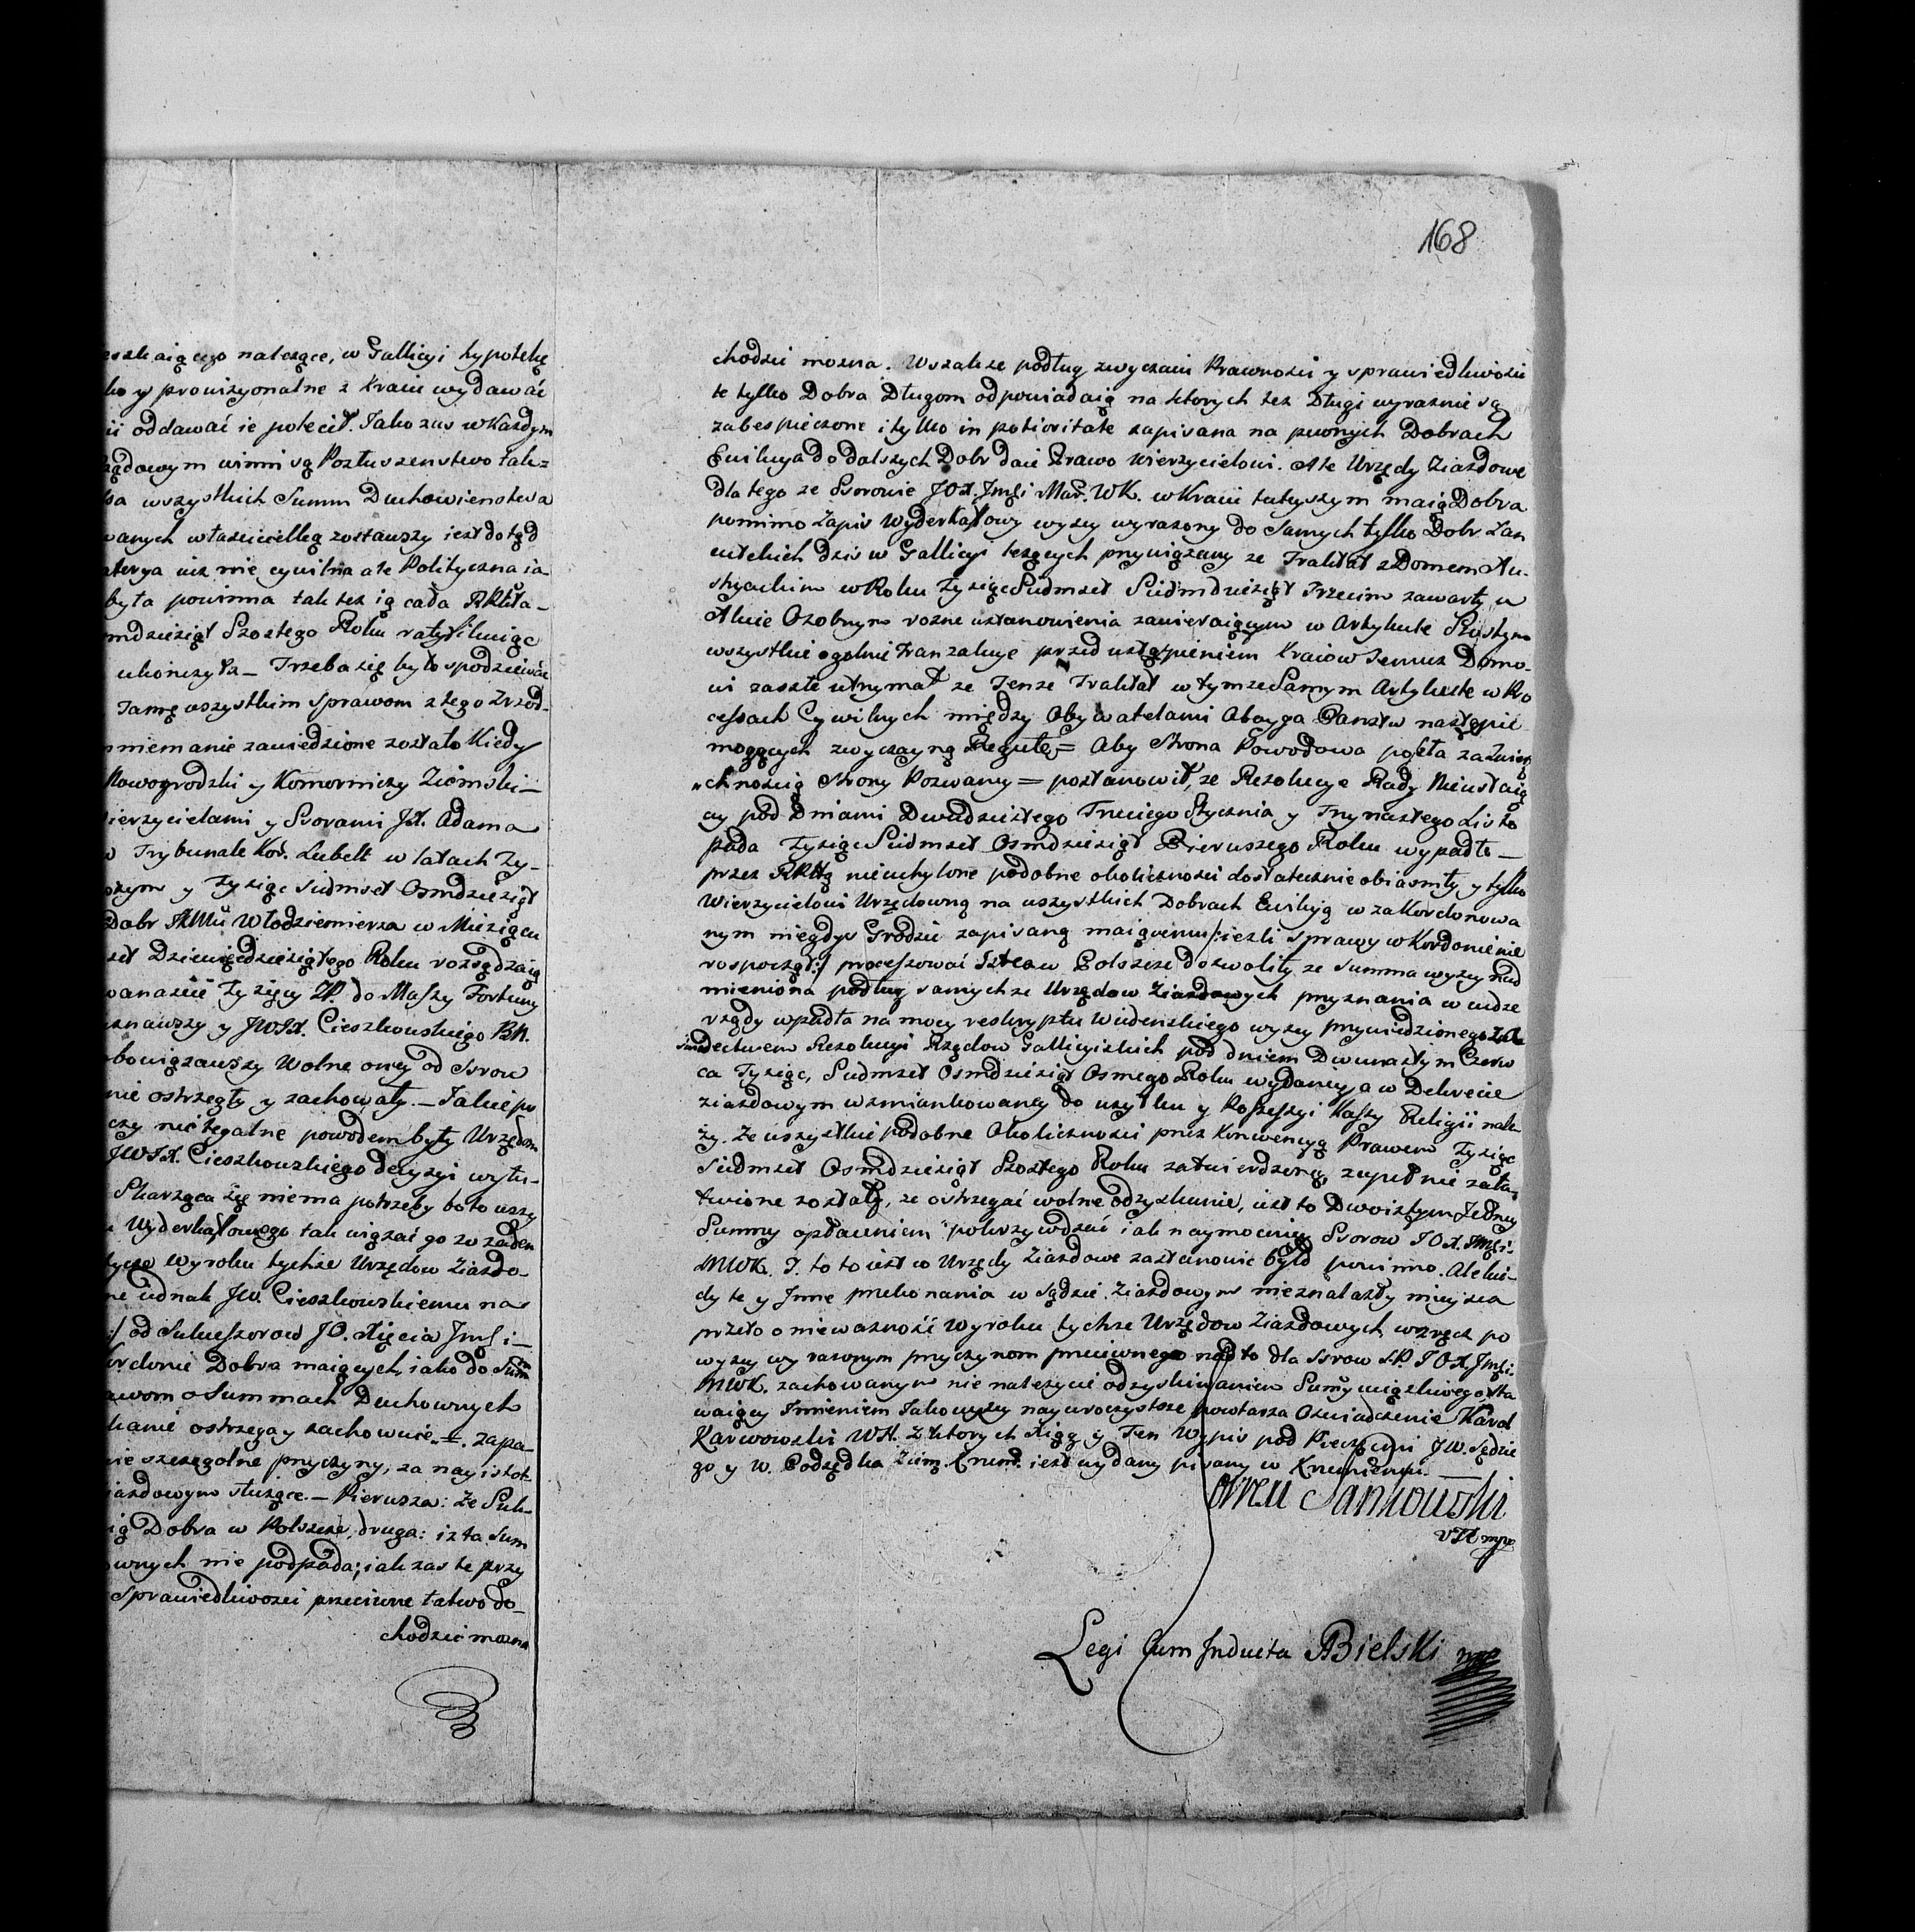 168
eszkaiącego należące, w Gallicyi hypotekę
ko y prowizyonalne z Kraiu wydawać
ii oddawać ie polecił. Jako zas w Każdym
ządowym winni są Posłuszenstwo tak=
wszystkich Summ Duchowienstwa
wanych właścicielką zostawszy iest dotąd
aterya iuż nie cywilna ale Polityczna ia-
była powinna tak też ią cała RKltła-
mdziesiąt Szostego Roku ratyfikuiąc
ukończyła – Trzeba się było spodziewać
Tamę wszystkim Sprawom z tego Zrzod-
mniemanie zawiedzione zostało Kiedy
Nowogrodzki y Komorniczy Ziemski –
ierzycielami y Ssorami JX. Adama
w Trybunale Kor. Lubelt w latach Ty-
szym y tysiąc siedmset Osmdziesiąt
Dobr Włodziemierza w Miesiącu
set Dziewiędziesiątego Roku rozsądzaią
wanascie tysięcy ZP. do Massy Fortuny
znawszy y JWJX. Cieszkowskiego BN.
bowiązawszy Wolne oney od Ssrow
nie ostrzegły y zachowały. – Takie po
czy nielegalne powodem były Urzędom
JWJX. Cieszkowskiego decyzyi wytu-
Skarżąca się niema potrzeby bo to uszy
Wyderkafowego tak wiązać go zo zaden
Wyroku tychże Urzędow Ziazdo-
ne iednak JW. Cieszkowskiemu na
:/ od Sukcessorow JO. Xięcia Jmsi –
ordonie Dobra maiących, iako do Sum
awom o Summach Duchownych
kanie ostrzega y zachowuie. =. zapa-
nie szczegolne przyczyny, za nayistot-
iazdowym służące. – Pierwsza: Ze Suk-
ią Dobra w Polszcze, druga: iz ta Sum
ownych nie podpada; iak zas te przy
Sprawiedliwości przeciwne łatwo do-
chodzić można
chodzić można. Wszakże podług zwyczaiu Prawności y sprawiedliwości
te tylko Dobra Długom odpowiadaią na ktorych też Długi wyraznie są
zabespieczone i tylko in potioritate zapisana na pewnych Dobrach
Ewikcya do dalszych Dobr daie Prawo Wierzycielowi. Ale Urzędy Ziazdowe
dla tego ze Ssorowie JOX. Jmsi Mar. WK. w Kraiu tuteyszym maią Dobra
pomimo Zapis Wyderkafowy wyzey wyrazony do Samych tylko Dobr Łan
cutskich dzis w Gallicyi leżących przywiązany ze Traktat z Domem Au-
stryackim w Roku Tysiąc Siedmset Siedmdziesiąt Trzecim zawarty w
Akcie Osobnym rozne ustanowienia zawieraiącym w Artykule Szostym
wszystkie ogolnie Tranzakcye przed ustąpieniem Kraiow Temuż Domo-
wi zaszłe utrzymał ze Tenże Traktat w tymże Samym Artykule w Pro
cessach Cywilnych między Obywatelami Oboyga Panstw nastąpić
mogących zwyczayną Regułę = Aby Strona Powodowa poszła za Zwierz
„chnością Strony Pozwaney = postanowił, ze Rezolucye Rady Nieustaią
cy pod Dniami Dwudziestego Trzeciego Stycznia y Trzynastego Listo
pada Tysiąc Siedmset Osmdziesiąt Pierwszego Roku wypadłe –
przez RKltą nieuchylone podobne okoliczności dostatecznie obiasniły y tylko
Wierzycielowi Urzędowną na wszystkich Dobrach Ewikcyą w zakordonowa
nym niegdys Grodzie zapisaną maiącemu /: iezli Sprawy w Kordonie nie
rospoczął :/ processować Sstcow w Polszcze dozwoliły ze Summa wyzey nad
mieniona podług samychże Urzędow Ziazdowych przyznania w cudze
rządy wpadła na mocy reskryptu Wiedenskiego wyzey przywiedzionego Za
świadectwem Rezolucyi Rządow Gallicyiskich pod dniem Dwunastym Czerw
ca Tysiąc, Siedmset Osmdziesiąt Osmego Roku wydaney, a w Dekrecie
ziazdowym wzmiankowaney do użytku y Possessyi Kassy Religii nale
ży. Ze wszystkie podobne Okoliczności przez Konwencyą Prawem Tysiąc
Siedmset Osmdziesiąt Szostego Roku zatwierdzoną, zupełnie zała-
twione zostały, ze ostrzegać wolne odzyskanie, iest to Dwoistym Jedney
Summy opłaceniem pokrzywdzić iak naymocniey Ssorow JOX. Jmsi.
MWK. J. to to iest co Urzędy Ziazdowe zastanowić było powinno. Ale kie-
dy te y Inne przekonania w Sądzie Ziazdowym nieznalazły mieysca
przeto o niewazność Wyroku tychże Urzędow Ziazdowych, wzręcz po
wyzey wyrazonym przyczynom przeciwnego nad to dla Ssrow S.P. JOX. Jmsi.
MWK. zachowanym nie należycie odzyskiwaniem Summy uciążliwego Sta
waiący Imieniem Jakowyzey nayuroczystsze powtarza Oswiadczenie Karol
Karwowski WX. Z ktorych Xiąg y Ten Wypis pod Pieczęciami JW. Sędzie
go y W. Podsędka Ziem. Krzem. iest wydany pisany w Krzemiencu. –
Jankowski
Legi Cum Inducta ABielski mp